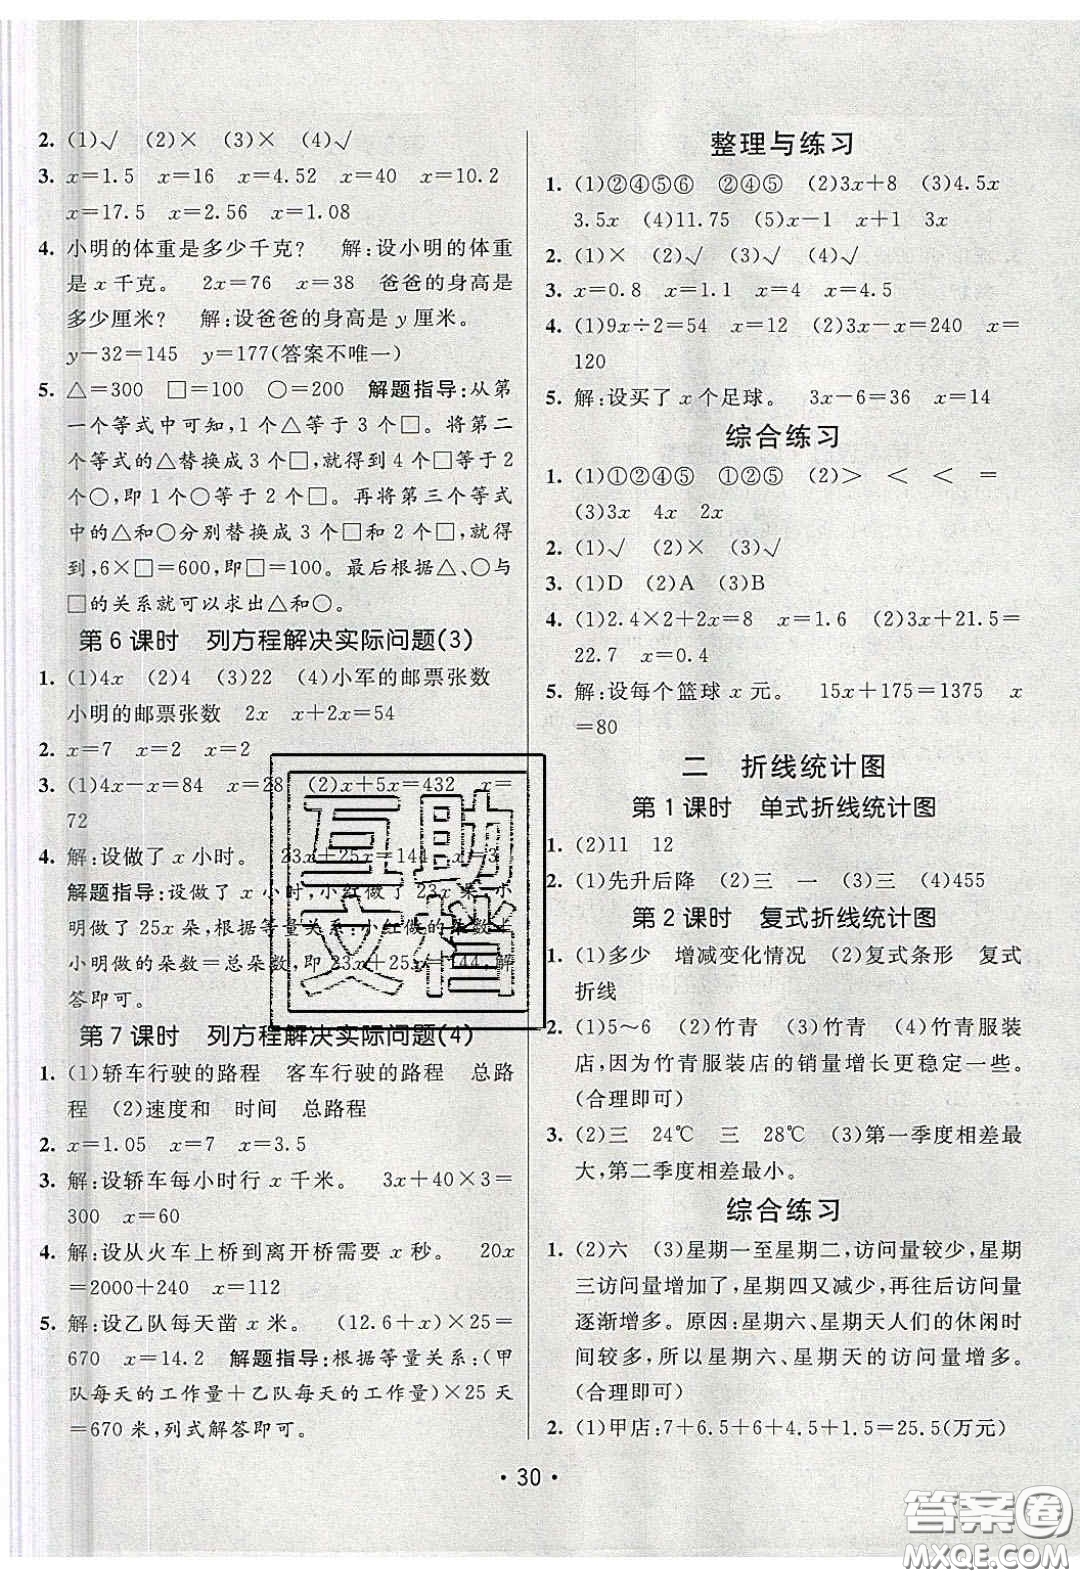 2. (1)√ (2)× (3)× (4)√
3. x=1.5 x=16 x=4.52 x=40 x=10.2
x=17.5 x=2.56 x=1.08
4. 小明的体重是多少千克? 解:设小明的体重
是 x 千克。 2x=76 x=38 爸爸的身高是
多少厘米? 解:设爸爸的身高是 y 厘米。
y-32=145 y=177(答案不唯一)
5. △=300 □=100 ○=200 解题指导:从第
一个等式中可知,1个△等于3个□。将第二
个等式的△替换成3个□,就得到4个□等于2
个○,即1个○等于2个□。再将第三个等式
中的△和○分别替换成3个□和2个□,就得
到,6×□=600,即□=100。最后根据△、○与
□的关系就可以求出△和○。
第6课时 列方程解决实际问题(3)
1. (1)4x (2)4 (3)22 (4)小军的邮票张数
小明的邮票张数 2x x+2x=54
2. x=7 x=2 x=2
3. (1)4x-x=84 x=28 (2)x+5x=432 x=
72
4. 解:设做了 x 小时。 23x+25x=144 x=3
解题指导:设做了 x 小时,小红做了 23x 朵,小
明做了 25x 朵,根据等量关系:小红做的朵数+
小明做的朵数=总朵数,即 23x+25x=144,解
答即可。
第7课时 列方程解决实际问题(4)
1. (1)轿车行驶的路程 客车行驶的路程 总路
程 (2)速度和 时间 总路程
2. x=1.05 x=7 x=3.5
3. 解:设轿车每小时行 x 千米。 3x+40×3=
300 x=60
4. 解:设从火车上桥到离开桥需要 x 秒。 20x
=2000+240 x=112
5. 解:设乙队每天凿 x 米。 (12.6+x)×25=
670 x=14.2 解题指导:根据等量关系:(甲
队每天的工作量+乙队每天的工作量)×25 天
=670 米,列式解答即可。
整理与练习
1. (1)②④⑤⑥ ②④⑤ (2)3x+8 (3)4.5x
3.5x (4)11.75 (5)x-1 x+1 3x
2. (1)× (2)√ (3)√ (4)√
3. x=0.8 x=1.1 x=4 x=4.5
4. (1)9x÷2=54 x=12 (2)3x-x=240 x=
120
5. 解:设买了 x 个足球。 3x-6=36 x=14
综合练习
1. (1)①②④⑤ ①②⑤ (2)> < < =
(3)3x 4x 2x
2. (1)√ (2)× (3)√
3. (1)D (2)A (3)B
4. (1)2.4×2+2x=8 x=1.6 (2)3x+21.5=
22.7 x=0.4
5. 解:设每个篮球 x 元。 15x+175=1375 x
=80
二 折线统计图
第1课时 单式折线统计图
1. (2)11 12
2. (1)先升后降 (2)三 一 (3)三 (4)455
第2课时 复式折线统计图
1. (1)多少 增减变化情况 (2)复式条形 复式
折线
2. (1)5~6 (2)竹青 (3)竹青 (4)竹青服装
店,因为竹青服装店的销量增长稳定一些。
(合理即可)
3. (2)三 24℃ 三 28℃ (3)第一季度相差最
大,第二季度相差最小。
综合练习
1. (2)六 (3)星期一至星期二,访问量较少,星期
三访问量增加了,星期四又减少,再往后访问量
逐渐增多。原因:星期六、星期天人们的休闲时
间较多,所以星期六、星期天的访问量增多。
(合理即可)
2. (1)甲店:7+6.5+6+4.5+1.5=25.5(万元)
· 30 ·
互助
文档
答案圈
MXQE.COM